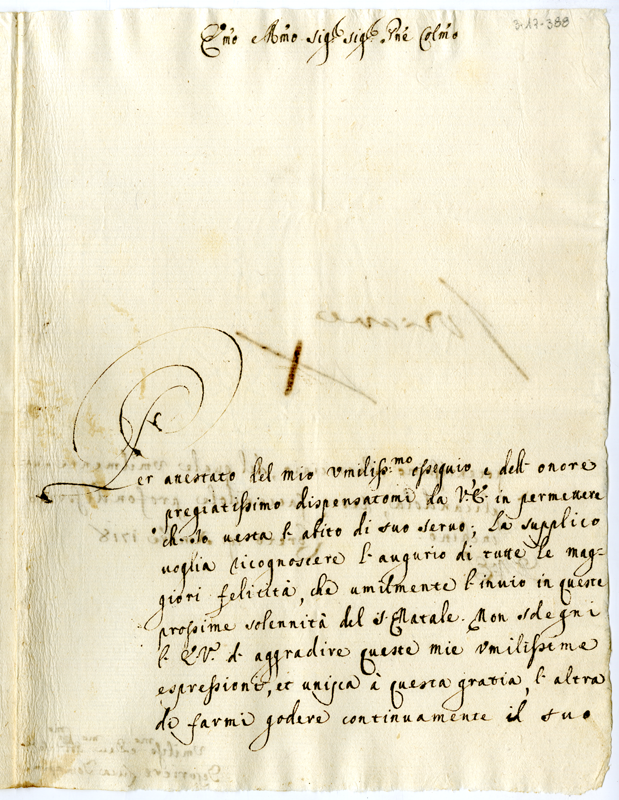 3·17·388
Em̃o e Rm̃o sig.r sig.r Pñe Colm̃o
Per attestato del mio umiliss.mo osseguio e dell' onore
pregiatissimo dispensatomi da V.E. in permettere
ch' Io vesta l' abito di suo servo; La supplico
voglia ricognoscere l' augurio di tutte le mag=
giori felicità, che umilmente l' invio in queste
prossime solennità del S. Natale. Non sdegni
l' E.V. d' aggradire queste mie umilissime
espressioni, et unisca à questa gratia, l' altra
di farmi godere continuamente il suo